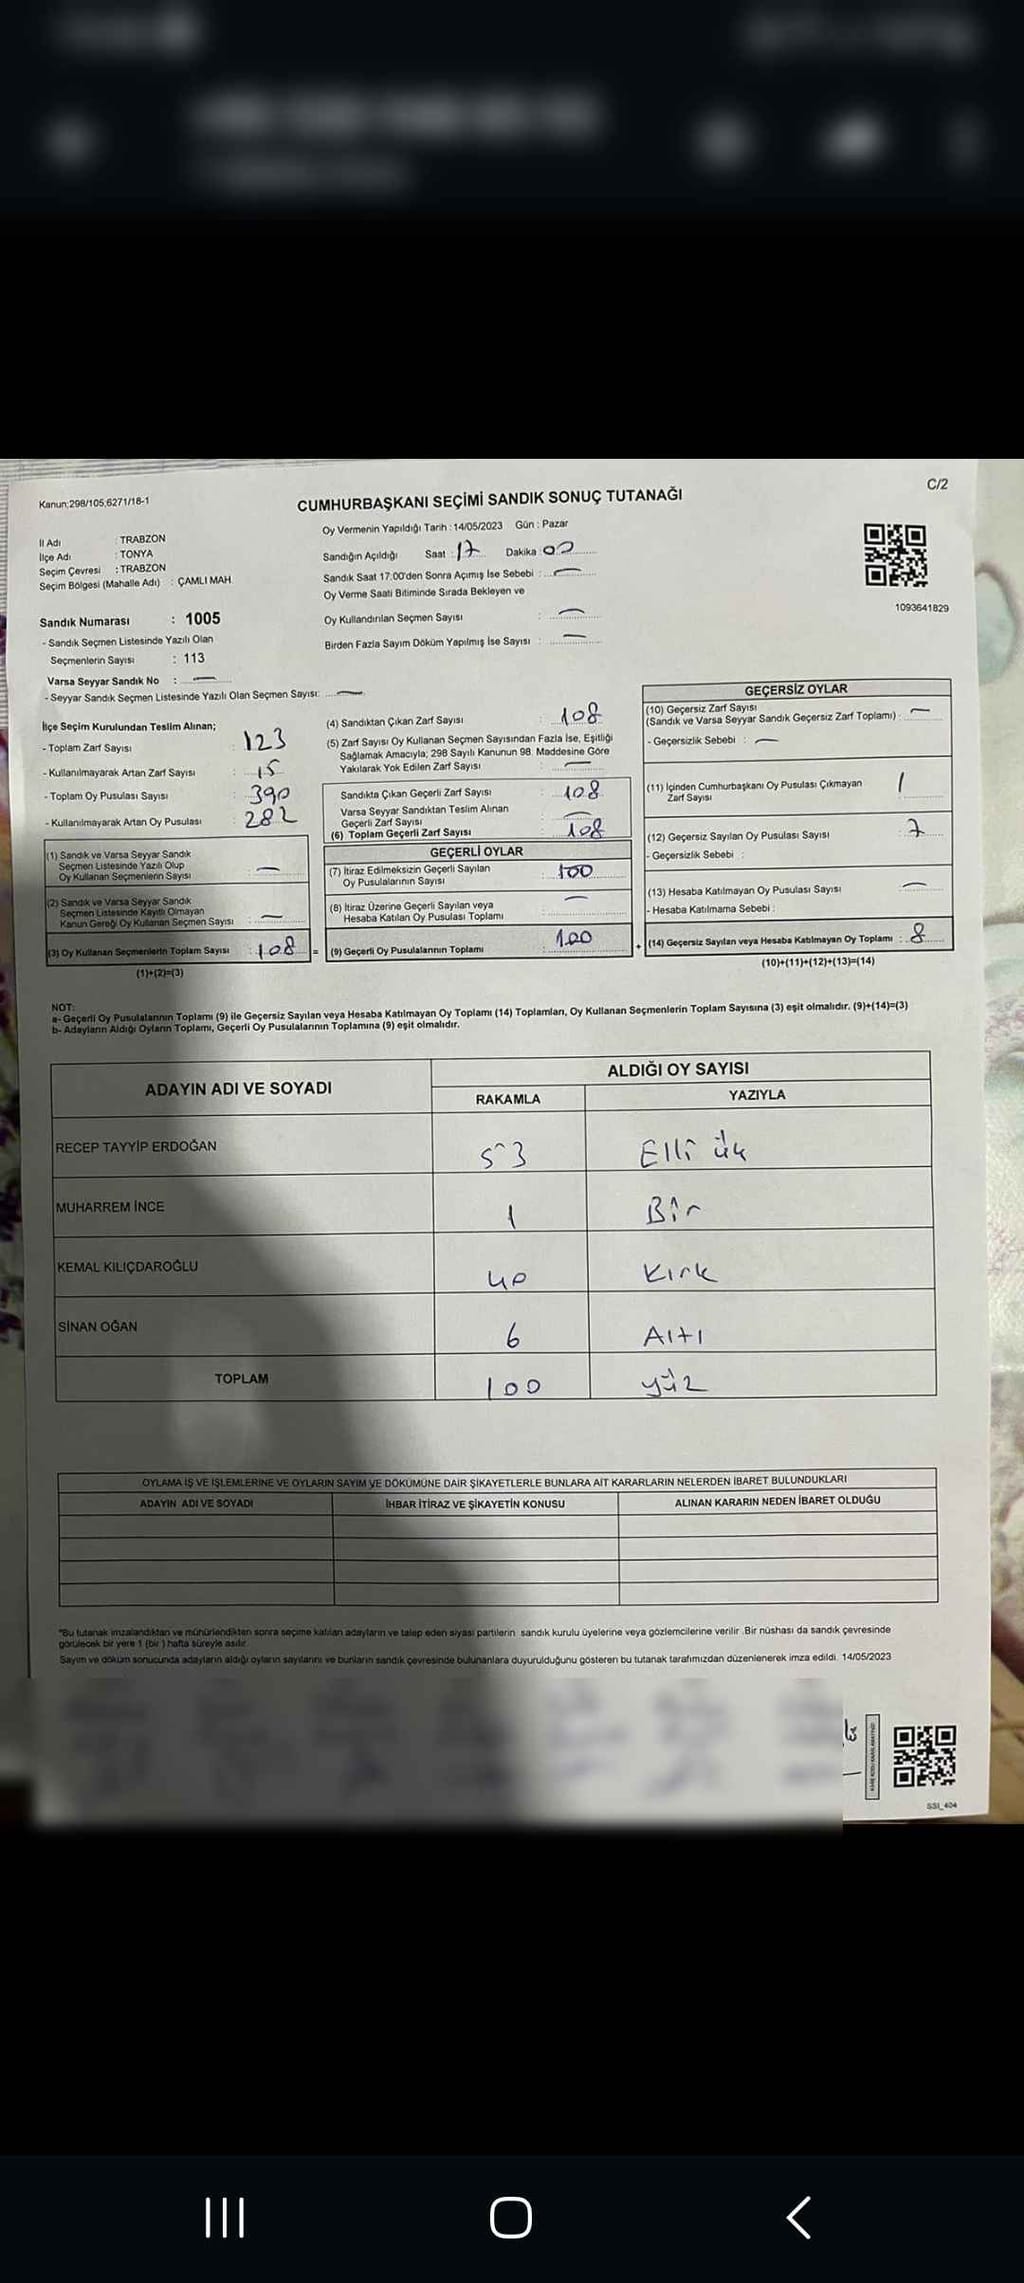 Kanun;298/105,6271/18-1
CUMHURBAŞKANI SEÇİMİ SANDIK SONUÇ TUTANAĞI
C/2
İl Adı : TRABZON
İlçe Adı : TONYA
Seçim Çevresi : TRABZON
Seçim Bölgesi (Mahalle Adı) : ÇAMLI MAH.
Oy Vermenin Yapıldığı Tarih : 14/05/2023 Gün : Pazar
Sandığın Açıldığı Saat : 17 Dakika 00
Sandık Saat 17:00'den Sonra Açımış İse Sebebi : —
Oy Verme Saati Bitiminde Sırada Bekleyen ve
Oy Kullandırılan Seçmen Sayısı : —
Birden Fazla Sayım Döküm Yapılmış İse Sayısı : —
1093641829
Sandık Numarası : 1005
- Sandık Seçmen Listesinde Yazılı Olan
Seçmenlerin Sayısı : 113
Varsa Seyyar Sandık No : —
- Seyyar Sandık Seçmen Listesinde Yazılı Olan Seçmen Sayısı: —
İlçe Seçim Kurulundan Teslim Alınan;
- Toplam Zarf Sayısı : 123
- Kullanılmayarak Artan Zarf Sayısı : 15
- Toplam Oy Pusulası Sayısı : 390
- Kullanılmayarak Artan Oy Pusulası : 282
(1) Sandık ve Varsa Seyyar Sandık
Seçmen Listesinde Yazılı Olup
Oy Kullanan Seçmenlerin Sayısı : —
(2) Sandık ve Varsa Seyyar Sandık
Seçmen Listesinde Kayıtlı Olmayan
Kanun Gereği Oy Kullanan Seçmen Sayısı : —
(3) Oy Kullanan Seçmenlerin Toplam Sayısı : 108 =
(1)+(2)=(3)
(4) Sandıktan Çıkan Zarf Sayısı : 108
(5) Zarf Sayısı Oy Kullanan Seçmen Sayısından Fazla İse, Eşitliği
Sağlamak Amacıyla; 298 Sayılı Kanunun 98. Maddesine Göre
Yakılarak Yok Edilen Zarf Sayısı : —
Sandıkta Çıkan Geçerli Zarf Sayısı : 108
Varsa Seyyar Sandıktan Teslim Alınan
Geçerli Zarf Sayısı : —
(6) Toplam Geçerli Zarf Sayısı : 108
GEÇERLİ OYLAR
(7) İtiraz Edilmeksizin Geçerli Sayılan
Oy Pusulalarının Sayısı : 100
(8) İtiraz Üzerine Geçerli Sayılan veya
Hesaba Katılan Oy Pusulası Toplamı : —
(9) Geçerli Oy Pusulalarının Toplamı : 100 +
GEÇERSİZ OYLAR
(10) Geçersiz Zarf Sayısı
(Sandık ve Varsa Seyyar Sandık Geçersiz Zarf Toplamı) : —
- Geçersizlik Sebebi : —
(11) İçinden Cumhurbaşkanı Oy Pusulası Çıkmayan
Zarf Sayısı 1
(12) Geçersiz Sayılan Oy Pusulası Sayısı : 7
- Geçersizlik Sebebi :
(13) Hesaba Katılmayan Oy Pusulası Sayısı : —
- Hesaba Katılmama Sebebi :
(14) Geçersiz Sayılan veya Hesaba Katılmayan Oy Toplamı : 8
(10)+(11)+(12)+(13)=(14)
NOT:
a- Geçerli Oy Pusulalarının Toplamı (9) ile Geçersiz Sayılan veya Hesaba Katılmayan Oy Toplamı (14) Toplamları, Oy Kullanan Seçmenlerin Toplam Sayısına (3) eşit olmalıdır. (9)+(14)=(3)
b- Adayların Aldığı Oyların Toplamı, Geçerli Oy Pusulalarının Toplamına (9) eşit olmalıdır.
ADAYIN ADI VE SOYADI
ALDIĞI OY SAYISI
RAKAMLA YAZIYLA
RECEP TAYYİP ERDOĞAN 53 Elli üç
MUHARREM İNCE 1 Bir
KEMAL KILIÇDAROĞLU 40 Kırk
SİNAN OĞAN 6 Altı
TOPLAM 100 Yüz
OYLAMA İŞ VE İŞLEMLERİNE VE OYLARIN SAYIM VE DÖKÜMÜNE DAİR ŞİKAYETLERLE BUNLARA AİT KARARLARIN NELERDEN İBARET BULUNDUKLARI
ADAYIN ADI VE SOYADI İHBAR İTİRAZ VE ŞİKAYETİN KONUSU ALINAN KARARIN NEDEN İBARET OLDUĞU
*Bu tutanak imzalandıktan ve mühürlendikten sonra seçime katılan adayların ve talep eden siyasi partilerin sandık kurulu üyelerine veya gözlemcilerine verilir .Bir nüshası da sandık çevresinde
görülecek bir yere 1 (bir ) hafta süreyle asılır.
Sayım ve döküm sonucunda adayların aldığı oyların sayılarını ve bunların sandık çevresinde bulunanlara duyurulduğunu gösteren bu tutanak tarafımızdan düzenlenerek imza edildi. 14/05/2023
SSI_404